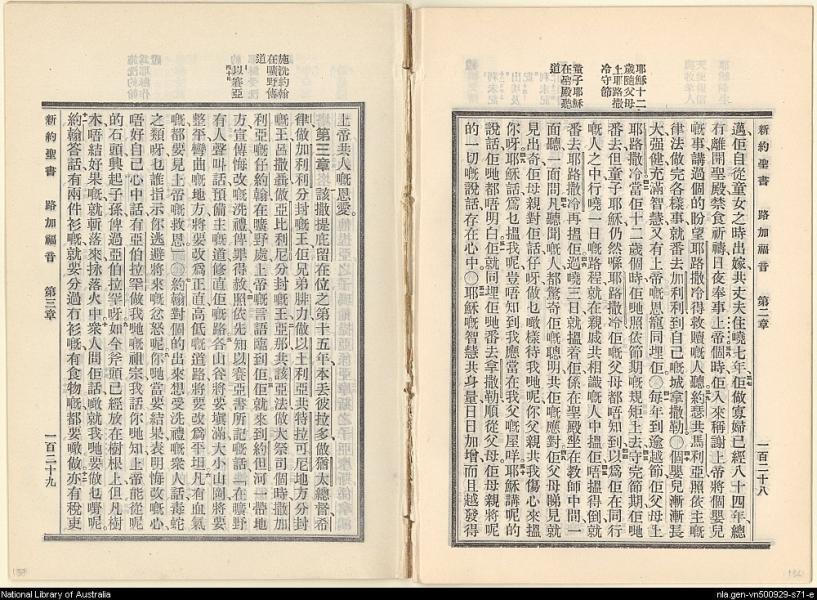 耶穌十二
歲隨父母
上耶路撒
冷守節
童子耶穌
在聖殿聽
道
新約聖書 路加福音 第二章 一百二十八
邁佢自從童女之時出嫁共丈夫住嘵七年佢做寡婦已經八十四年總
冇離開聖殿禁食祈禱日夜奉事上帝個時佢入來稱謝上帝將個嬰兒
嘅事講過個的盼望耶路撒冷得救贖嘅人聽約瑟共馬利亞照依主嘅
律法做完各樣事就番去加利利到自己嘅城拿撒勒〇個嬰兒漸漸長
大强健充滿智慧又有上帝嘅恩寵同埋佢〇每年到逾越節佢父母上
耶路撒冷當佢十二歲個時佢哋照依節期嘅規矩上去守完節期佢哋
番去但童子耶穌仍然喺耶路撒冷佢嘅父母都唔知到以爲佢在同行
嘅人之中行嘵一日嘅路程就在親戚共相識嘅人中搵佢唔搵得倒就
番去耶路撒冷再搵佢過嘵三日就搵着佢係在聖殿坐在教師中間一
面聽一面問凡聽聞嘅人都驚奇佢嘅聰明共佢嘅應對佢父母睇見就
見出奇佢母親對佢話仔呀做乜噉樣待我哋呢你父親共我傷心來搵
你呀耶穌話爲乜搵我呢豈唔知到我應當在我父嘅屋咩耶穌講呢的
說話佢哋都唔明白佢就同埋佢哋番去拿撒勒順從父母佢母親將呢
的一切嘅說話存在心中〇耶穌嘅智慧共身量日日加增而且越發得
施洗約翰
在曠野傳
道
以賽亞
上帝共人嘅恩愛。
第三章 該撒提庇留在位之第十五年本丟彼拉多做猶太總督希
律做加利利分封嘅王佢兄弟腓力做以土利亞共特拉可尼地方分封
嘅王呂撒聶做亞比利尼分封嘅王亞那共該亞法做大祭司個時撒加
利亞嘅仔約翰在曠野處上帝嘅言語臨到佢佢就來到約但河一帶地
方宣傳悔改嘅洗禮俾罪得赦照依先知以賽亞書所記嘅話一在曠野
有人聲叫話預備主嘅道修直佢嘅路各山谷將要塡滿大小山岡將要
整平彎曲嘅地方將要改爲正直高低嘅道路將要改爲平坦凡有血氣
嘅都要見上帝嘅救恩〇約翰對個的出來想受洗禮嘅衆人話毒蛇
之類呀乜誰指示你逃避將來嘅忿怒呢你哋當要結果表明悔改嘅心
唔好自己心中話有亞伯拉罕做我哋嘅祖宗我話你哋知上帝能從呢
的石頭興起子孫俾過亞伯拉罕呀如今斧頭已經放在樹根上但凡樹
木唔結好果嘅就斬落來掭落火中衆人問佢話噉就我哋要做乜嘢呢
約翰答話有兩件衫嘅就要分過冇衫嘅有食物嘅都要噉做亦有稅吏
新約聖書 路加福音 第三章 一百二十九
National Library of Australia
nla.gen-vn500929-s71-e